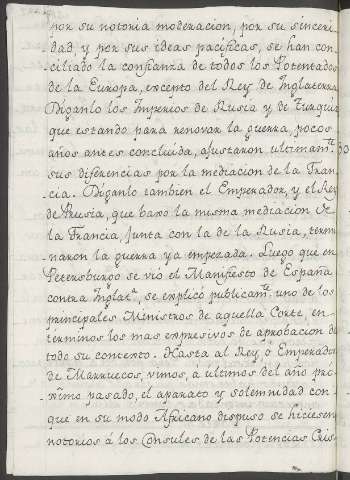 por su notoria moderacion, por su sinceri-
dad, y por sus ideas pacificas, se han con-
ciliado la confianza de todos los Potentados
de la Europa, excepto del Rey de Inglaterra
Diganlo los Imperios de Rusia y de Turquia
que estando para renovar la guerra, pocos
años antes concluida, ajustaron ultimamte
sus diferencias por la mediacion de la Fran-
cia. Diganlo tambien el Emperador, y el Rey
de Prusia, que baxo la misma mediacion de
la Francia, junta con la de la Rusia, termi-
naron la guerra ya empezada. Luego que en
Petersburgo se vió el Manifiesto de España
contra Inglaa, se explicó publicamte uno de los
principales Ministros de aquella Corte, en
terminos los mas expresivos de aprobacion de
todo su contexto. Hasta al Rey, ó Emperador
de Marruecos, vimos, a ultimos del año pró-
ximo pasado, el aparato y solemnidad con
que en su modo Africano dispuso se hiciesen
notorios á los Consules de las Potencias Cris-